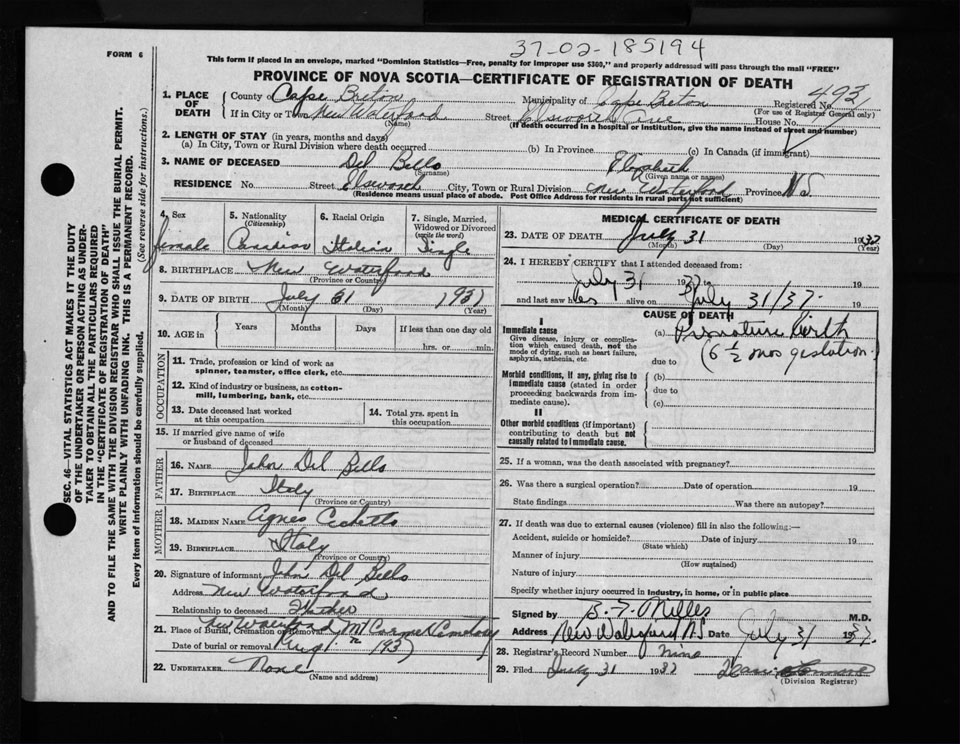 37-02-185194
FORM 6
This form if placed in an envelope, marked "Dominion Statistics—Free, penalty for improper use $300," and properly addressed will pass through the mail "FREE"
PROVINCE OF NOVA SCOTIA—CERTIFICATE OF REGISTRATION OF DEATH
1. PLACE OF DEATH
County of Cape Breton Municipality of Cape Breton Registered No. 493
(For use of Registrar General only)
If in City or Town New Waterford Street Elsworth Ave House No.
(Name) (If death occurred in a hospital or institution, give the name instead of street and number)
2. LENGTH OF STAY (in years, months and days)
(a) In City, Town or Rural Division where death occurred (b) In Province (c) In Canada (if immigrant)
3. NAME OF DECEASED Del Bello Elizabeth
(Surname) (Given name or names)
RESIDENCE No. Street City, Town or Rural Division New Waterford Province N.S.
(Residence means usual place of abode. Post Office Address for residents in rural parts not sufficient)
4. Sex
female
5. Nationality (Citizenship)
Canadian
6. Racial Origin
Italian
7. Single, Married, Widowed or Divorced (write the word)
Single
8. BIRTHPLACE New Waterford
(Province or County)
9. DATE OF BIRTH July 31 1937
(Month) (Day) (Year)
10. AGE in Years Months Days If less than one day old
hrs. or min.
OCCUPATION
11. Trade, profession or kind of work as spinner, teamster, office clerk, etc.
12. Kind of industry or business, as cotton-mill, lumbering, bank, etc.
13. Date deceased last worked at this occupation
14. Total yrs. spent in this occupation
15. If married give name of wife or husband of deceased
FATHER
16. NAME John Del Bello
17. BIRTHPLACE Italy
(Province or Country)
MOTHER
18. MAIDEN NAME Agnes
19. BIRTHPLACE Italy
(Province or Country)
20. Signature of informant John Del Bello
Address New Waterford
Relationship to deceased Father
21. Place of Burial, Cremation or Removal New Waterford Mt Carmel Cemetery
Date of burial or removal Aug 1 1937
22. UNDERTAKER None
(Name and address)
MEDICAL CERTIFICATE OF DEATH
23. DATE OF DEATH July 31 1937
(Month) (Day) (Year)
24. I HEREBY CERTIFY that I attended deceased from:
July 31 1937 to 19
and last saw her alive on July 31/37. 19
CAUSE OF DEATH
I
Immediate cause
Give disease, injury or complication which caused death, not the mode of dying, such as heart failure, asphyxia, asthenia, etc.
(a) Premature birth
(6 1/2 mos gestation.)
due to
Morbid conditions, if any, giving rise to immediate cause (stated in order proceeding backwards from immediate cause).
(b)
due to
(c)
II
Other morbid conditions (if important) contributing to death but not causally related to immediate cause.
25. If a woman, was the death associated with pregnancy?
26. Was there a surgical operation? Date of operation 19
State findings Was there an autopsy?
27. If death was due to external causes (violence) fill in also the following:—
Accident, suicide or homicide? Date of injury 19
(State which)
Manner of injury
(How sustained)
Nature of injury
Specify whether injury occurred in industry, in home, or in public place
Signed by M.D.
Address New Waterford N.S. Date July 31 1937.
28. Registrar's Record Number
29. Filed July 31 1937
(Division Registrar)
SEC. 46—VITAL STATISTICS ACT MAKES IT THE DUTY
OF THE UNDERTAKER OR PERSON ACTING AS UNDER-
TAKER TO OBTAIN ALL THE PARTICULARS REQUIRED
IN THE "CERTIFICATE OF REGISTRATION OF DEATH"
AND TO FILE THE SAME WITH THE DIVISION REGISTRAR WHO SHALL ISSUE THE BURIAL PERMIT.
WRITE PLAINLY WITH UNFADING INK. THIS IS A PERMANENT RECORD.
Every item of information should be carefully supplied. (See reverse side for instructions.)